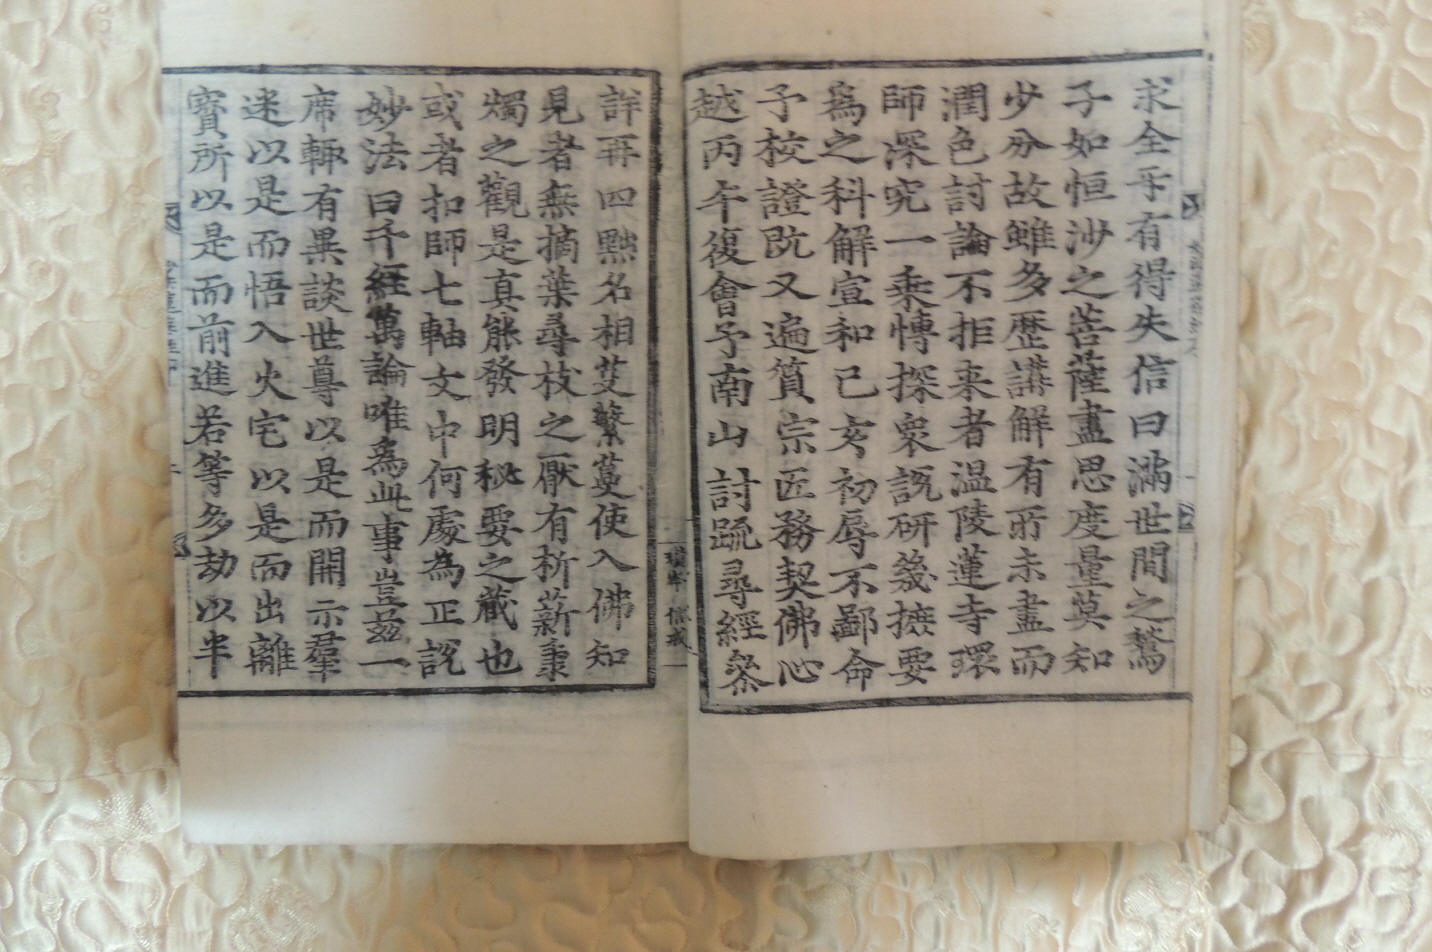 求全乎有得失信曰滿世間之鶖
子如恒沙之菩薩盡思度量莫知
少分故雖多歷講解有所未盡而
潤色討論不拒來者温陵蓮寺環
師深究一乘慱探衆說研幾摭要
爲之科解宣和己亥初辱不鄙命
予校證旣又遍質宗匠務契佛心
越丙午復會予南山討䟽尋經叅
詳再四㸃名相芟繁蔓使入佛知
見者無摘葉尋枝之厭有析薪秉
燭之觀是真能發明秘要之藏也
或者扣師七軸文中何處為正說
妙法曰千經萬論唯爲此事豈玆一
席輙有異談世尊以是而開示羣
迷以是而悟入火宅以是而出離
寳所以是而前進若等多劫以半